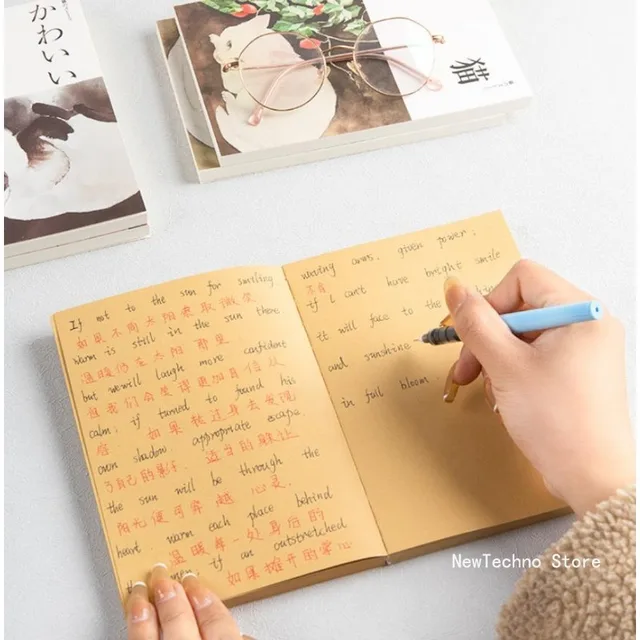 かわいい
猫
If not to the sun for smiling
如果不向太阳索取微笑
warm is still in the sun there
温暖仍在太阳那里
but we will laugh more confident
但我们会笑得更加自信从
calm; if turned to found his
容 如果转过身去发现
own shadow appropriate escape.
了自己的影子 适当的躲让
the sun will be through the
阳光便可穿越心灵
heart warm each place behind
温暖每一处身后的
if an outstretched
如果摊开的掌心
wrong arms, given power;
if I can't have bright smile
it will face to the
and sunshine
in full bloom
NewTechno Store